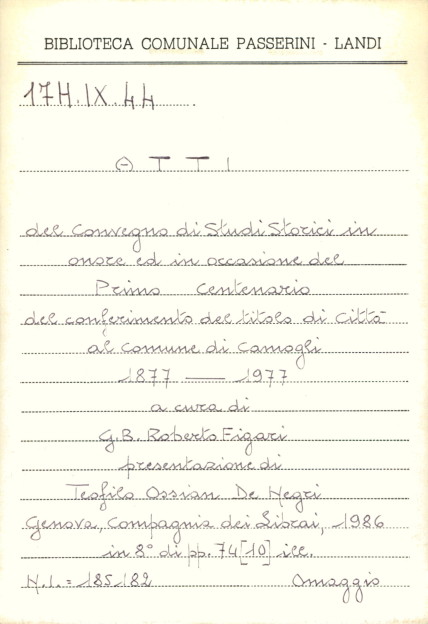 BIBLIOTECA COMUNALE PASSERINI - LANDI
17H.IX.44
ATTI
del Convegno di Studi Storici in
onore ed in occasione del
Primo Centenario
del conferimento del titolo di Città
al comune di Camogli
1877 — 1977
a cura di
G.B. Roberto Figari
presentazione di
Teofilo Ossian De Negri
Genova, Compagnia dei Librai, 1986
in 8° di pp. 74[10] ill.
N.I.= 185182 Omaggio